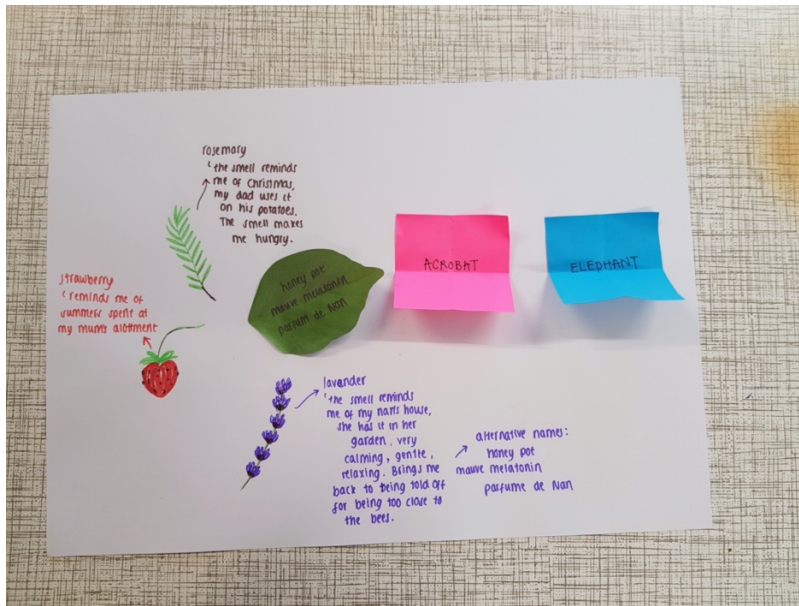 rosemary
'the smell reminds
me of Christmas,
my dad uses it
on his potatoes.
The smell makes
me hungry.
strawberry
'reminds me of
summers spent at
my mums alottment
honey pot
mauve melatonin
parfum de Nan
ACROBAT
ELEPHANT
lavander
'the smell reminds
me of my nan's house,
she has it in her
garden, very
calming, gentle,
relaxing. Brings me
back to being told off
for being too close to
the bees.
alternative names:
honey pot
mauve melatonin
parfume de Nan